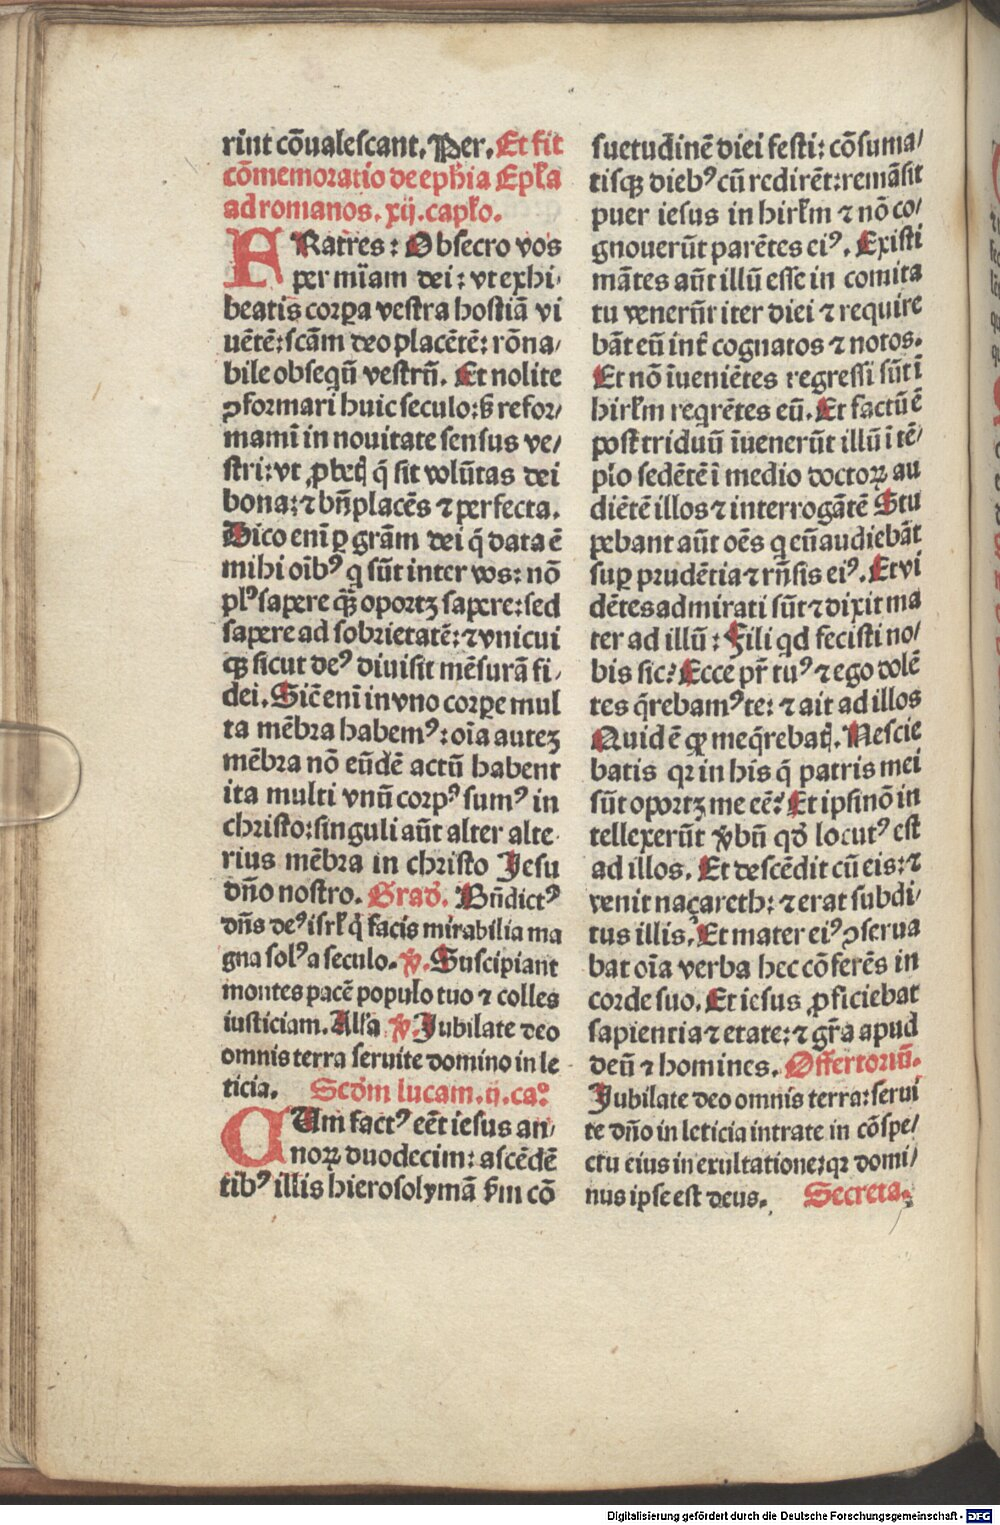 rint cõualescant. Per. Et fit
cõmemoratio de eph̃ia Ep̃la
ad romanos. xij. cap̃lo.
FRatres: Obsecro vos
per mĩam dei: vt exhi-
beatis corꝑa vestra hostiã vi
uẽtẽ: scãm deo placẽtẽ: rõna-
bile obsequũ vestrũ. Et nolite
ꝓformari huic seculo: s̃ refor/
mamĩ in nouitate sensus ve/
stri: vt ꝓbetꝭ q̃ sit volũtas dei
bona: ⁊ bñplacẽs ⁊ perfecta.
Dico enĩ ꝑ grãm dei q̃ data ẽ
mihi oĩbꝰ q sũt inter vos: nõ
plꝰ sapere q̃ꝫ oportꝫ sapere: sed
sapere ad sobrietatẽ: ⁊ vnicui
qꝫ sicut deꝰ diuisit mẽsurã fi-
dei. Sic̃ enĩ in vno corꝑe mul
ta mẽbra habemꝰ: oĩa auteꝫ
mẽbra nõ eũdẽ actũ habent
ita multi vnũ corpꝰ sumꝰ in
christo: singuli aũt alter alte-
rius mẽbra in christo Jesu
dño nostro. Grad̃. Bñdictꝰ
dñs deꝰ isr̃l q̃ facis mirabilia ma
gna solꝰ a seculo. ℣. Suscipiant
montes pacẽ populo tuo ⁊ colles
iusticiam. All̃a ℣. Jubilate deo
omnis terra seruite domino in le
ticia. Scd̃m lucam. ij. ca°
CUm factꝰ eẽt iesus an-
noꝝ duodecim: ascẽdẽ
tibꝰ illis hierosolymã s̃m cõ
suetudinẽ diei festi: cõsuma/
tisqꝫ diebꝰ cũ redirẽt: remãsit
puer iesus in hirl̃m ⁊ nõ co/
gnouerũt parẽtes eiꝰ. Existi
mãtes aũt illũ esse in comita
tu venerũt iter diei ⁊ require
bãt eũ int̃ cognatos ⁊ notos.
Et nõ ĩueniẽtes regressi sũt ĩ
hirl̃m reqrẽtes eũ. Et factũ ẽ
post triduũ ĩuenerũt illũ ĩ tẽ/
plo sedẽtẽ ĩ medio doctoꝝ au
diẽtẽ illos ⁊ interrogãtẽ Stu
pebant aũt oẽs q eũ audiebãt
suꝑ prudẽtia ⁊ rñsis eiꝰ. Et vi
dẽtes admirati sũt ⁊ dixit ma
ter ad illũ: Fili qd fecisti no/
bis sic? Ecce pr̃ tuꝰ ⁊ ego dolẽ
tes q̃rebamꝰ te: ⁊ ait ad illos
Quid ẽ qꝫ me q̃rebatꝭ. Nescie
batis qꝛ in his q̃ patris mei
sũt oportꝫ me eẽ? Et ipsi nõ in
tellexerũt ṽbũ qd̃ locutꝰ est
ad illos. Et descẽdit cũ eis: ⁊
venit naçareth: ⁊ erat subdi/
tus illis. Et mater eiꝰ ꝯserua
bat oĩa verba hec cõferẽs in
corde suo. Et iesus ꝓficiebat
sapientia ⁊ etate: ⁊ gr̃a apud
deũ ⁊ homines. Offertoriũ.
Jubilate deo omnis terra: serui
te dño in leticia intrate in cõspe/
ctu eius in exultatione: qꝛ domi/
nus ipse est deus. Secreta.
Digitalisierung gefördert durch die Deutsche Forschungsgemeinschaft - DFG